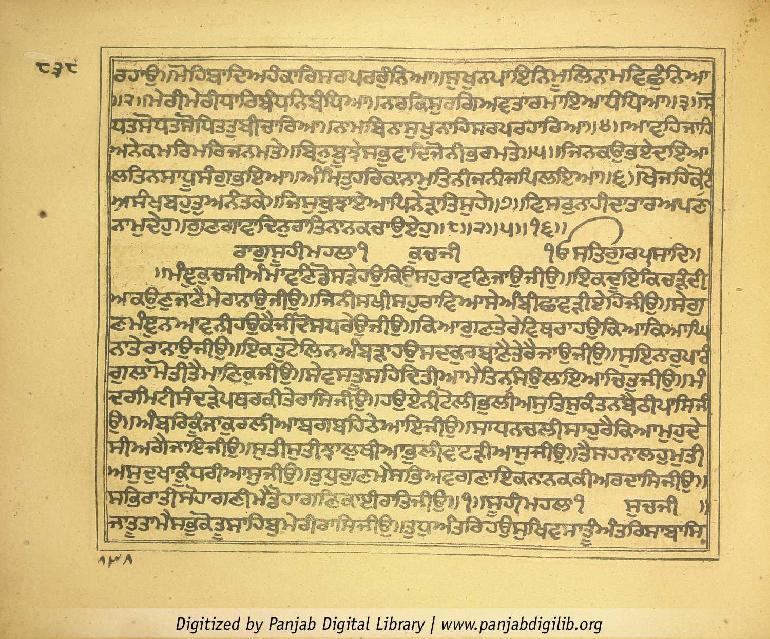 ੮੩੮
ਰਹਾਉ॥ਮੋਹਿਬਾਦਿਅਹੰਕਾਰਿਸਰਪਰਰੁੰਨਿਆ॥ਸੁਖੁਨਪਾਇਨਿਮੂਲਿਨਾਮਵਿਛੁੰਨਿਆ
॥੨॥ਮੇਰੀਮੇਰੀਧਾਰਿਬੰਧਨਿਬੰਧਿਆ॥ਨਰਕਿਸੁਰਗਿਅਵਤਾਰਮਾਇਆਧੰਧਿਆ॥੩॥ਸੋ
ਧਤਸੋਧਤਸੋਧਿਤਤੁਬੀਚਾਰਿਆ॥ਨਾਮਬਿਨਾਸੁਖੁਨਾਹਿਸਰਪਰਹਾਰਿਆ॥੪॥ਆਵਹਿਜਾਹਿ
ਅਨੇਕਮਰਿਮਰਿਜਨਮਤੇ॥ਬਿਨੁਬੂਝੇਸਭੁਵਾਦਿਜੋਨੀਭਰਮਤੇ॥੫॥ਜਿਨਕਉਭਏਦਇਆ
ਲਤਿਨਸਾਧੂਸੰਗੁਭਇਆ॥ਅੰਮ੍ਰਿਤੁਹਰਿਕਾਨਾਮੁਤਿਨੀਜਨੀਜਪਿਲਇਆ॥੬॥ਖੋਜਹਿਕੋਟਿ
ਅਸੰਖਬਹੁਤੁਅਨੰਤਕੇ॥ਜਿਸੁਬੁਝਾਏਆਪਿਨੇੜਾਤਿਸੁਹੇ॥੭॥ਵਿਸਰੁਨਾਹੀਦਾਤਾਰਆਪਣਾ
ਨਾਮੁਦੇਹੁ॥ਗੁਣਗਾਵਾਦਿਨੁਰਾਤਿਨਾਨਕਚਾਉਏਹੁ॥੮॥੨॥੫॥੧੬॥
ਰਾਗੁਸੂਹੀਮਹਲਾ੧ ਕੁਚਜੀ ੴਸਤਿਗੁਰਪ੍ਰਸਾਦਿ॥
॥ਮੰਞੁਕੁਚਜੀਅੰਮਾਵਣਿਡੋਸੜੇਹਉਕਿਉਸਹੁਰਾਵਣਿਜਾਉਜੀਉ॥ਇਕਦੂਇਕਿਚੜੰਦੀ
ਆਕਉਣੁਜਾਣੈਮੇਰਾਨਾਉਜੀਉ॥ਜਿਨੀਸਖੀਸਹੁਰਾਵਿਆਸੇਅੰਬੀਛਾਵੜੀਏਹਿਜੀਉ॥ਸੇਗੁ
ਣਮੰਞੁਨਆਵਨੀਹਉਕੈਜੀਦੋਸਧਰੇਉਜੀਉ॥ਕਿਆਗੁਣਤੇਰੇਵਿਥਰਾਹਉਕਿਆਕਿਆਘਿ
ਨਾਤੇਰਾਨਾਉਜੀਉ॥ਇਕਤੁਟੋਲਿਨਅੰਬੜਾਹਉਸਦਕੁਰਬਾਣੈਤੇਰੈਜਾਉਜੀਉ॥ਸੁਇਨਾਰੁਪਾਰੰ
ਗੁਲਾਮੋਤੀਤੈਮਾਣਿਕੁਜੀਉ॥ਸੇਵਸਤੂਸਹਿਦਿਤੀਆਮੈਤਿਨਸਿਉਲਾਇਆਚਿਤੁਜੀਉ॥ਮੰ
ਦਰਮਿਟੀਸੰਦੜੇਪਥਰਕੀਤੇਰਾਸਿਜੀਉ॥ਹਉਏਨੀਟੋਲੀਭੁਲੀਅਸੁਤਿਸੁਕੰਤਨਬੈਠੀਪਾਸਿਜੀ
ਉ॥ਅੰਬਰਿਕੂੰਜਾਕੁਰਲੀਆਬਗਬਹਿਠੇਆਇਜੀਉ॥ਸਾਧਨਚਲੀਸਾਹੁਰੈਕਿਆਮੁਹੁਦੇ
ਸੀਅਗੈਜਾਇਜੀਉ॥ਸੁਤੀਸੁਤੀਝਾਲੁਥੀਆਭੁਲੀਵਾਟੜੀਆਸੁਜੀਉ॥ਤੈਸਹਨਾਲਹੁਮੁਤੀ
ਅਸੁਦੁਖਾਕੂੰਧਰੀਆਸੁਜੀਉ॥ਤੁਧੁਗੁਣਮੈਸਭਿਅਵਗਣਾਇਕਨਾਨਕਕੀਅਰਦਾਸਿਜੀਉ॥
ਸਭਿਰਾਤੀਸੋਹਾਗਣੀਮੈਡੋਹਾਗਣਿਕਾਈਰਾਤਿਜੀਉ॥੧॥ਸੂਹੀਮਹਲਾ੧ ਸੁਚਜੀ ॥
ਜਾਤੂਤਾਮੈਸਭੁਕੋਤੂਸਾਹਿਬੁਮੇਰੀਰਾਸਿਜੀਉ॥ਤੁਧੁਅੰਤਰਿਹਉਸੁਖਿਵਸਾਤੂੰਅੰਤਰਿਸਾਬਾਸਿ
Digitized by Panjab Digital Library | www.panjabdigilib.org